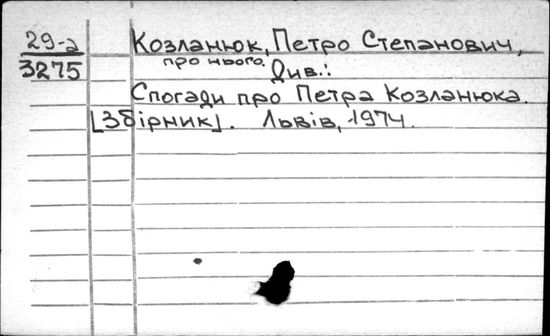 29-а
3275
Козланюк, Петро Степанович,
про нього. Див.:
Спогади про Петра Козланюка.
[Збірник]. Львів, 1974.